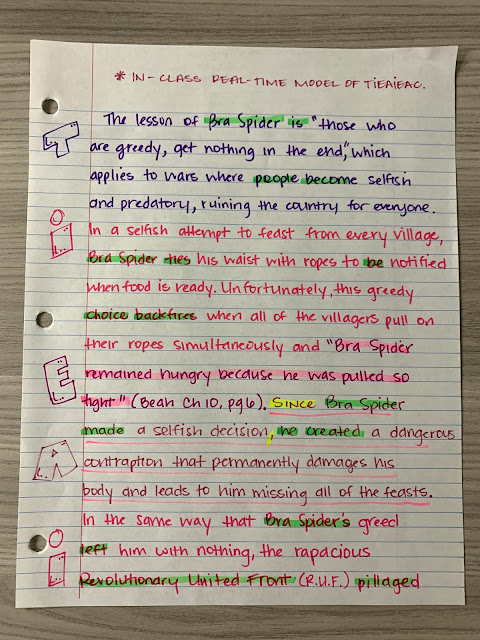 * IN-CLASS REAL-TIME MODEL OF TIEAIEAC.
T The lesson of Bra Spider is "those who
are greedy, get nothing in the end," which
applies to wars where people become selfish
and predatory, ruining the country for everyone.
I In a selfish attempt to feast from every village,
Bra Spider ties his waist with ropes to be notified
when food is ready. Unfortunately, this greedy
choice backfires when all of the villagers pull on
their ropes simultaneously and "Bra Spider
E remained hungry because he was pulled so
tight" (Beah Ch 10, pg 6). Since Bra Spider
made a selfish decision, he created a dangerous
A contraption that permanently damages his
body and leads to him missing all of the feasts.
I In the same way that Bra Spider's greed
left him with nothing, the rapacious
Revolutionary United Front (R.U.F.) pillaged